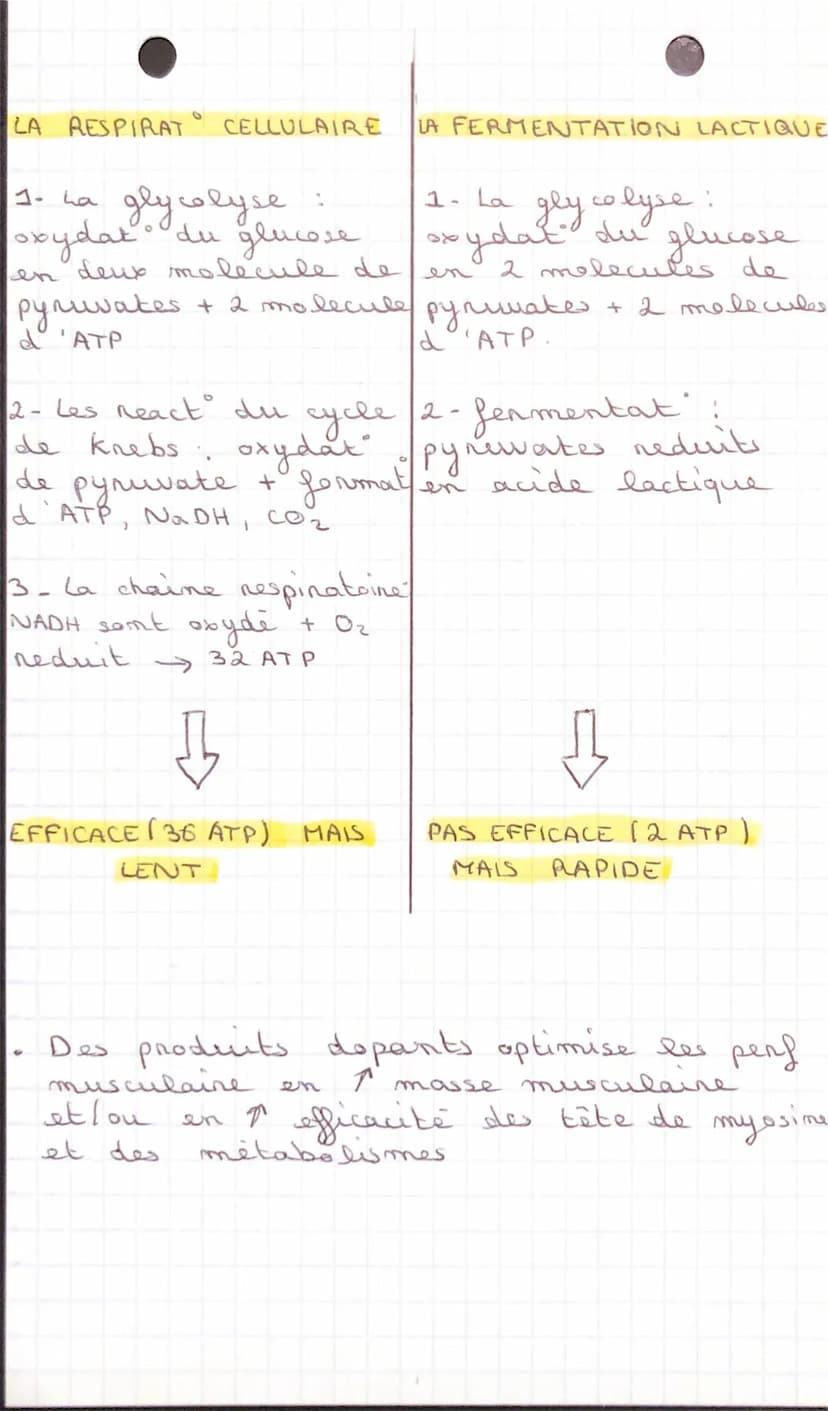 LA RESPIRAT° CELLULAIRE
1- La glycolyse :
oxydat° du glucose
en deux molecule de
pyruvates + 2 molecule
d'ATP
2- Les react° du cycle
de Krebs : oxydat°
de pyruvate + format°
d'ATP, NaDH, CO2
3- La chaine respiratoire
NADH sont oxydé + O2
reduit → 32 ATP
EFFICACE (36 ATP) MAIS
LENT
LA FERMENTATION LACTIQUE
1- La glycolyse :
oxydat° du glucose
en 2 molecules de
pyruvates + 2 molecules
d'ATP.
2- fermentat° :
pyruvates reduits
en acide lactique
PAS EFFICACE (2 ATP)
MAIS RAPIDE
• Des produits dopants optimise les perf
musculaire en ↑ masse musculaire
et/ou en ↑ efficacité des tête de myosine
et des métabolismes